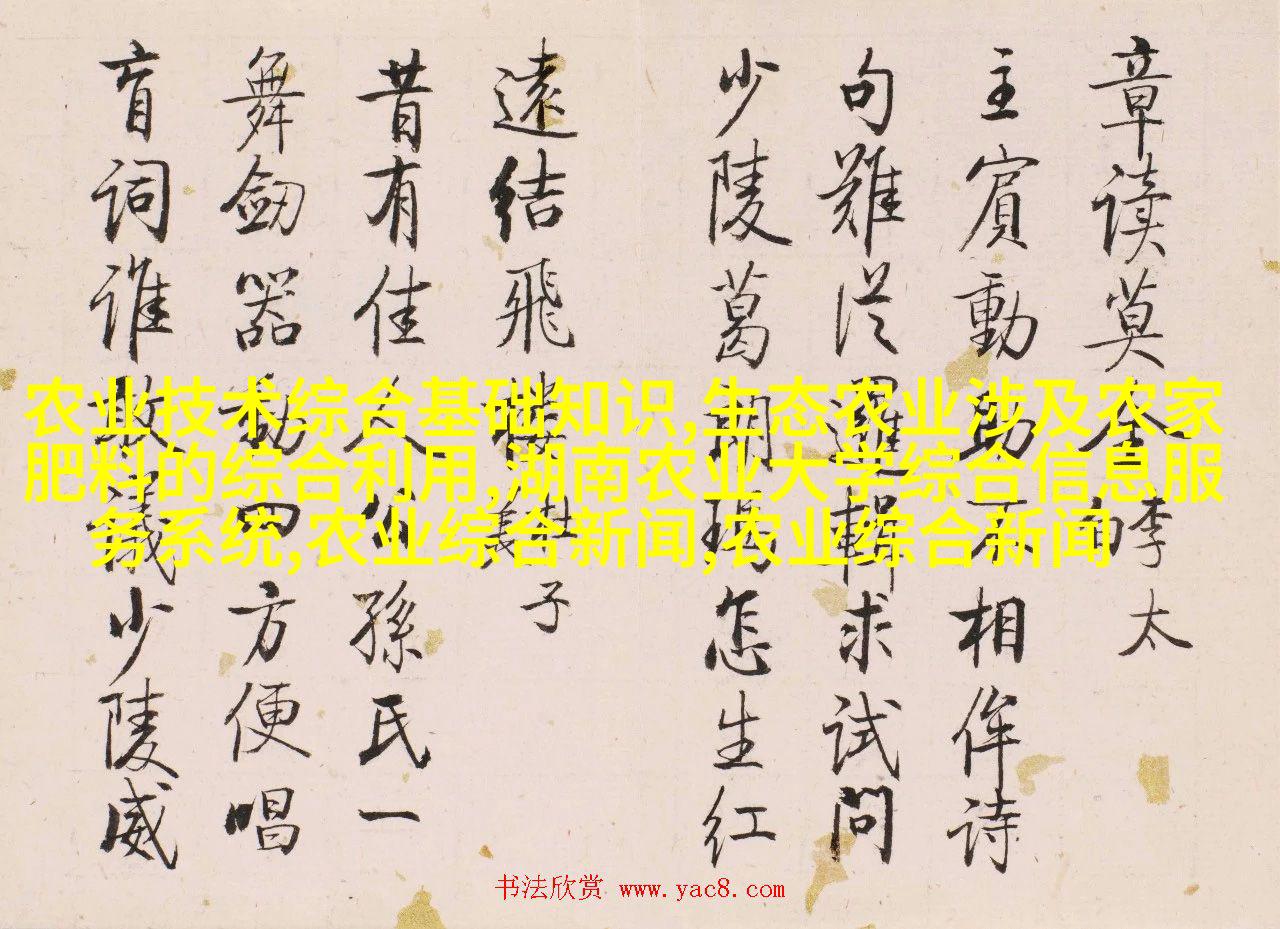 农业技术综合基础知识,生态农业涉及农家
肥料的综合利用,湖南农业大学综合信息服
务系统,农业综合新闻,农业综合新闻
章读莫 李太
主賓動助不相侔诗
句難从邏輯求试问
少陵葛朗瑪怎生红
遠结飛樓 子
昔有佳人公孫氏一
舞劒器動四方便唱
盲词谁敢議少陵威
书法欣赏 www.yac8.com